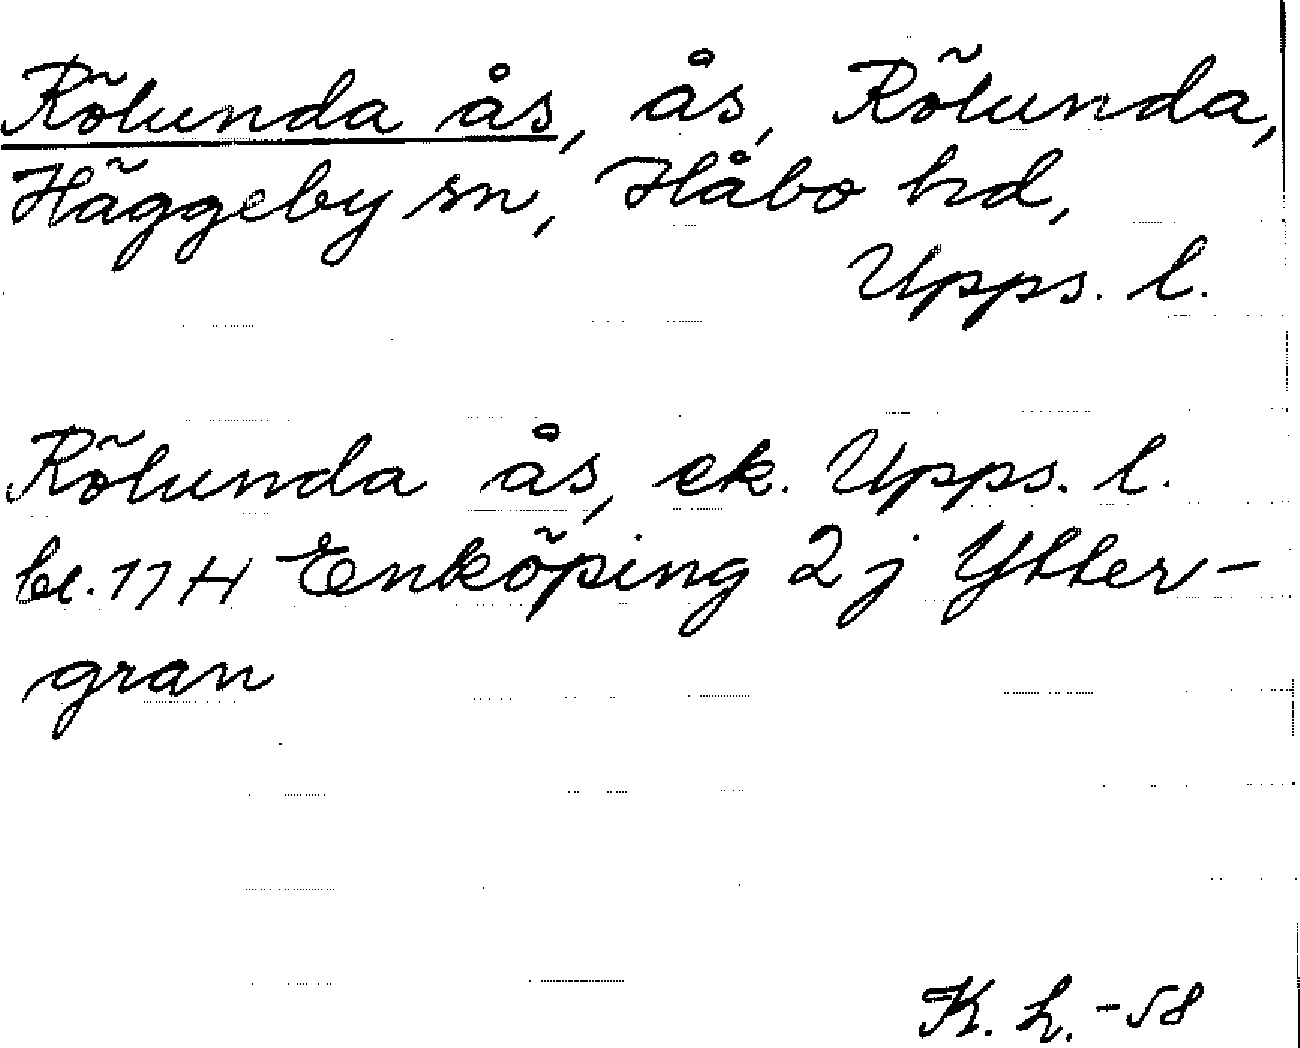 Rölunda ås, ås, Rölunda,
Häggeby sn, Håbo hd,
Upps. l.
Rölunda ås, ek. Upps. l.
bl. 17 H Enköping 2j Ytter-
gran
K. L. -58